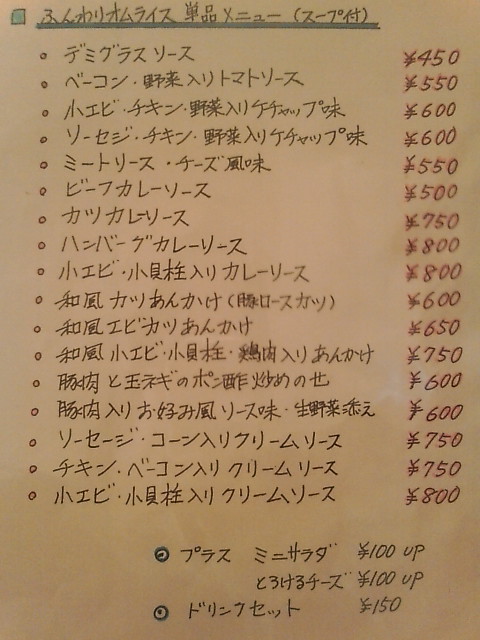 ふんわりオムライス 単品メニュー (スープ付)
• デミグラスソース ¥450
• ベーコン・野菜入りトマトソース ¥550
• 小エビ・チキン・野菜入りケチャップ味 ¥600
• ソーセジ・チキン・野菜入りケチャップ味 ¥600
• ミートソース・チーズ風味 ¥550
• ビーフカレーソース ¥500
• カツカレーソース ¥750
• ハンバーグカレーソース ¥800
• 小エビ・小貝柱入りカレーソース ¥800
• 和風カツあんかけ(豚ロースカツ) ¥600
• 和風エビカツあんかけ ¥650
• 和風小エビ・小貝柱・鶏肉入りあんかけ ¥750
• 豚肉と玉ネギのポン酢炒めのせ ¥600
• 豚肉入りお好み風ソース味・生野菜添え ¥600
• ソーセージ・コーン入りクリームソース ¥750
• チキン・ベーコン入りクリームソース ¥750
• 小エビ・小貝柱入りクリームソース ¥800
◎ プラス ミニサラダ ¥100 UP
とろけるチーズ ¥100 UP
◎ ドリンクセット ¥150